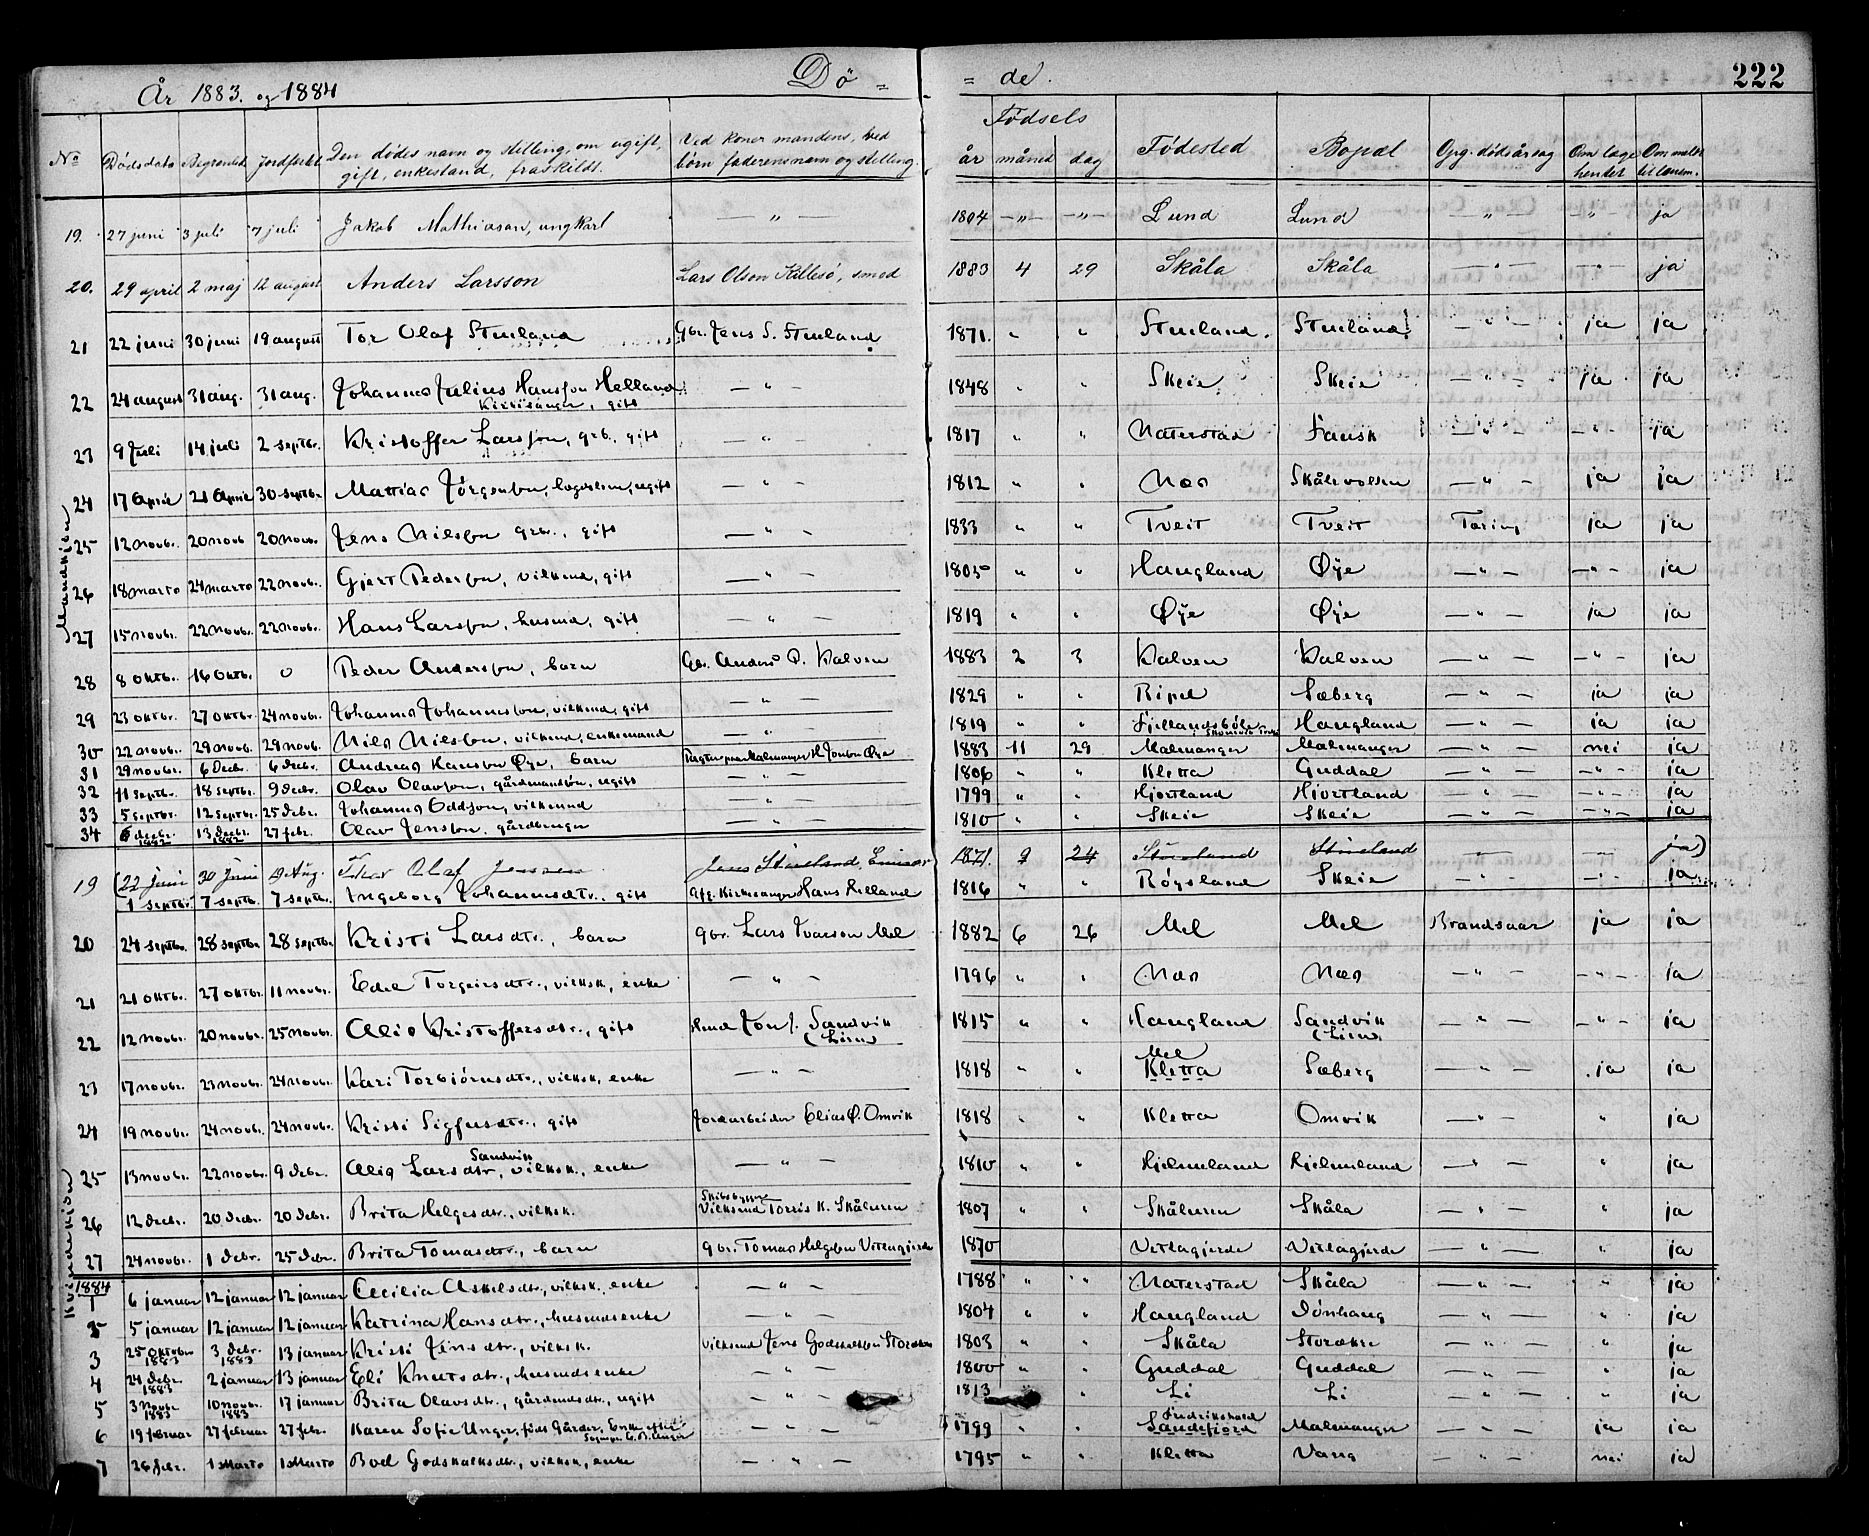 År 1883. og 1884 Dö = = de. 222
No Dødsdato Begravelsd. Jordfæst. Den dødes navn og stilling, om ugift, gift, enkestand, fraskildt. Ved koner mandens, ved børn faderens navn og stilling. Fødsels år måned dag Fødested Bopæl Opg. dødsårsag Om læge hentet Om meldt til lensm.
Mandkjøn
19. 27 juni 3 juli 7 juli Jakob Mathiason, ungkarl — " — 1804 — " — — " — Lund Lund — " — - " - ja
20. 29 april 2 maj 12 august Anders Larsson Lars Olson Killesö, smed 1883 4 29 Skåla Skåla — " — - " - ja
21 22 juni 30 juni 19 august Tor Olaf Stueland Gbr. Jens S. Stueland 1871. " " Stueland. Stueland — " — ja ja
22 24 august 31 aug. 31 aug. Johannes Julius Hansson Helland Kirkesanger, gift — " — 1848 " " Skeie Skeie — " — ja ja
23 9 juli 14 juli 2 septbr. Kristoffer Larsson, grb., gift — " — 1817 " " Naterstad Fausk — " — - " - ja
24 17 April 21 April 30 septbr. Mattias Jörgenson, logslem, ugift — " — 1812 " " Næs Skålevolden — " — ja ja
25 12 novbr. 20 novb 20 novb. Jens Nilsson grb., gift — " — 1833 " " Tveit Tveit Tæring ja ja
26 18 marts 24 marts 22 novb. Gjert Pederson, vilkmd, gift — " — 1805 " " Haugland Øye — " — - " - ja
27 15 novbr. 22 novbr. 22 novbr. Hans Larsson, husmd, gift — " — 1819 " " Øye Øye — " — ja ja
28 8 oktbr. 16 oktbr. 0 Peder Anderson, barn Gbr. Anders P. Valven 1883 2 3 Valven Valven — " — - " - ja
29 23 oktbr. 27 oktbr. 24 novbr. Johannes Johannesson, vilkmd, gift — " — 1829 " " Ripel Sæberg — " — ja ja
30 22 novbr. 29 novb. 29 novb. Nils Nilsson, vilkmd, enkemand — " — 1819 " " Fjellandsbøle Haugland — " — ja ja
31 29 novbr. 6 decbr. 6 decbr. Andreas Hanson Øye, barn Malmanger H. Jonson Øye 1883 11 29 Malmanger Malmanger — " — nei ja
32 11 septbr. 18 septbr. 9 decbr. Olav Olavson, gårdmandsön, ugift — " — 1806 " " Kletta Guddal — " — - " - ja
33 5 septbr. 12 septbr. 25 decbr. Johannes Oddson, vilkmnd — " — 1799 " " Hjortland Hjortland — " — - " - ja
34 6 decbr. 1882 13 decbr. 1882 27 febr. Olav Jensson, gårdbruger — " — 1810 " " Skeie Skeie — " — - " - ja
Kvindekjön
(22 juni 30 juni 19 Aug. Thor Olaf Jenssen Jens Stueland 1871. 9 24 Stueland Stueland — — ja)
19 1 septbr. 7 septb. 7 septb. Ingeborg Johannesdtr., gift Afg. Kirkesanger Hans Helland 1816 " " Röysland Skeie — " — - " - ja
20 24 septbr. 28 septbr. 28 septbr. Kristi Larsdtr., barn gbr. Lars Ivarson Mel 1882 6 26 Mel Mel Brandsaar ja ja
21 21 oktbr. 27 oktbr. 11 novbr. Edel Torgeirsdtr., vilksk, enke — " — 1796 " " Næs Næs — " — - " - ja
22 12 novbr. 20 novbr. 25 novbr. Alis Kristoffersdtr., gift Hmd Jon J. Sandvik (Lien) 1815 " " Haugland Sandvik (Lien) — " — - " - ja
23 17 novbr. 23 novbr. 24 novbr. Kari Torbiörnsdtr., vilksk, enke — " — 1818 " " Mel Kletta Sæberg — " — ja ja
24 19 novbr. 24 novbr. 24 novbr. Kristi Sigfusdtr., gift Jordarbeider Elias Ø. Omvik 1818 " " Kletta Omvik — " — " ja
25 13 novbr. 22 novbr. 9 decbr. Alis Larsdtr. Sandvik, vilksk., enke — " — 1810 " " Hjelmeland Hjelmeland — " — " ja
26 12 decbr. 20 decbr. 20 decbr. Brita Helgesdtr., vilksk. Skibsbygger Vilksmd Torris K. Skåluren 1807 " " Skåluren Skåla — " — " ja
27 24 novbr. 1 decbr. 25 decbr. Brita Tomasdtr., barn gbr. Tomas Helgeson Vetlagjerde 1870 Vetlagjerde Vetlagjerde — " — " ja
1884
1 6 januar 12 januar 12 januar Cecilia Askelsdtr., vilksk., enke — " — 1788 " " Naterstad Skåla — " — " ja
5 januar 12 januar 12 januar Katrina Hansdtr., husmdsenke — " — 1804 " " Haugland Dönhaug — " — " ja
3 25 oktober 1883 3 decbr. 1883 13 januar Kristi Jensdtr., vilksk. Vilksmd Jens Godskalkson Storækre 1803 " " Skåla Storækre — " — " ja
4 24 decbr. 1883 2 januar 13 januar Eli Knutsdtr., husmdsenke — " — 1800 " " Guddal Guddal — " — " ja
5 3 Novbr 1883 10 novbr. 1883 17 januar Brita Olavsdtr., gårdmdsd., ugift — " — 1813 " Li Li — " — " ja
6 19 februar 27 februar 27 febr. Karen Sofie Unger, föds Gårder, Enke efter Sogneprs. Unger — " — 1799 " " Fredrikshald Sandefjord Malmanger — " — ja ja
7 26 febr. 1 Marts 1 Marts Boel Godskalksdtr., vilksk, enke — " — 1795 " " Kletta Vang — " — nei ja